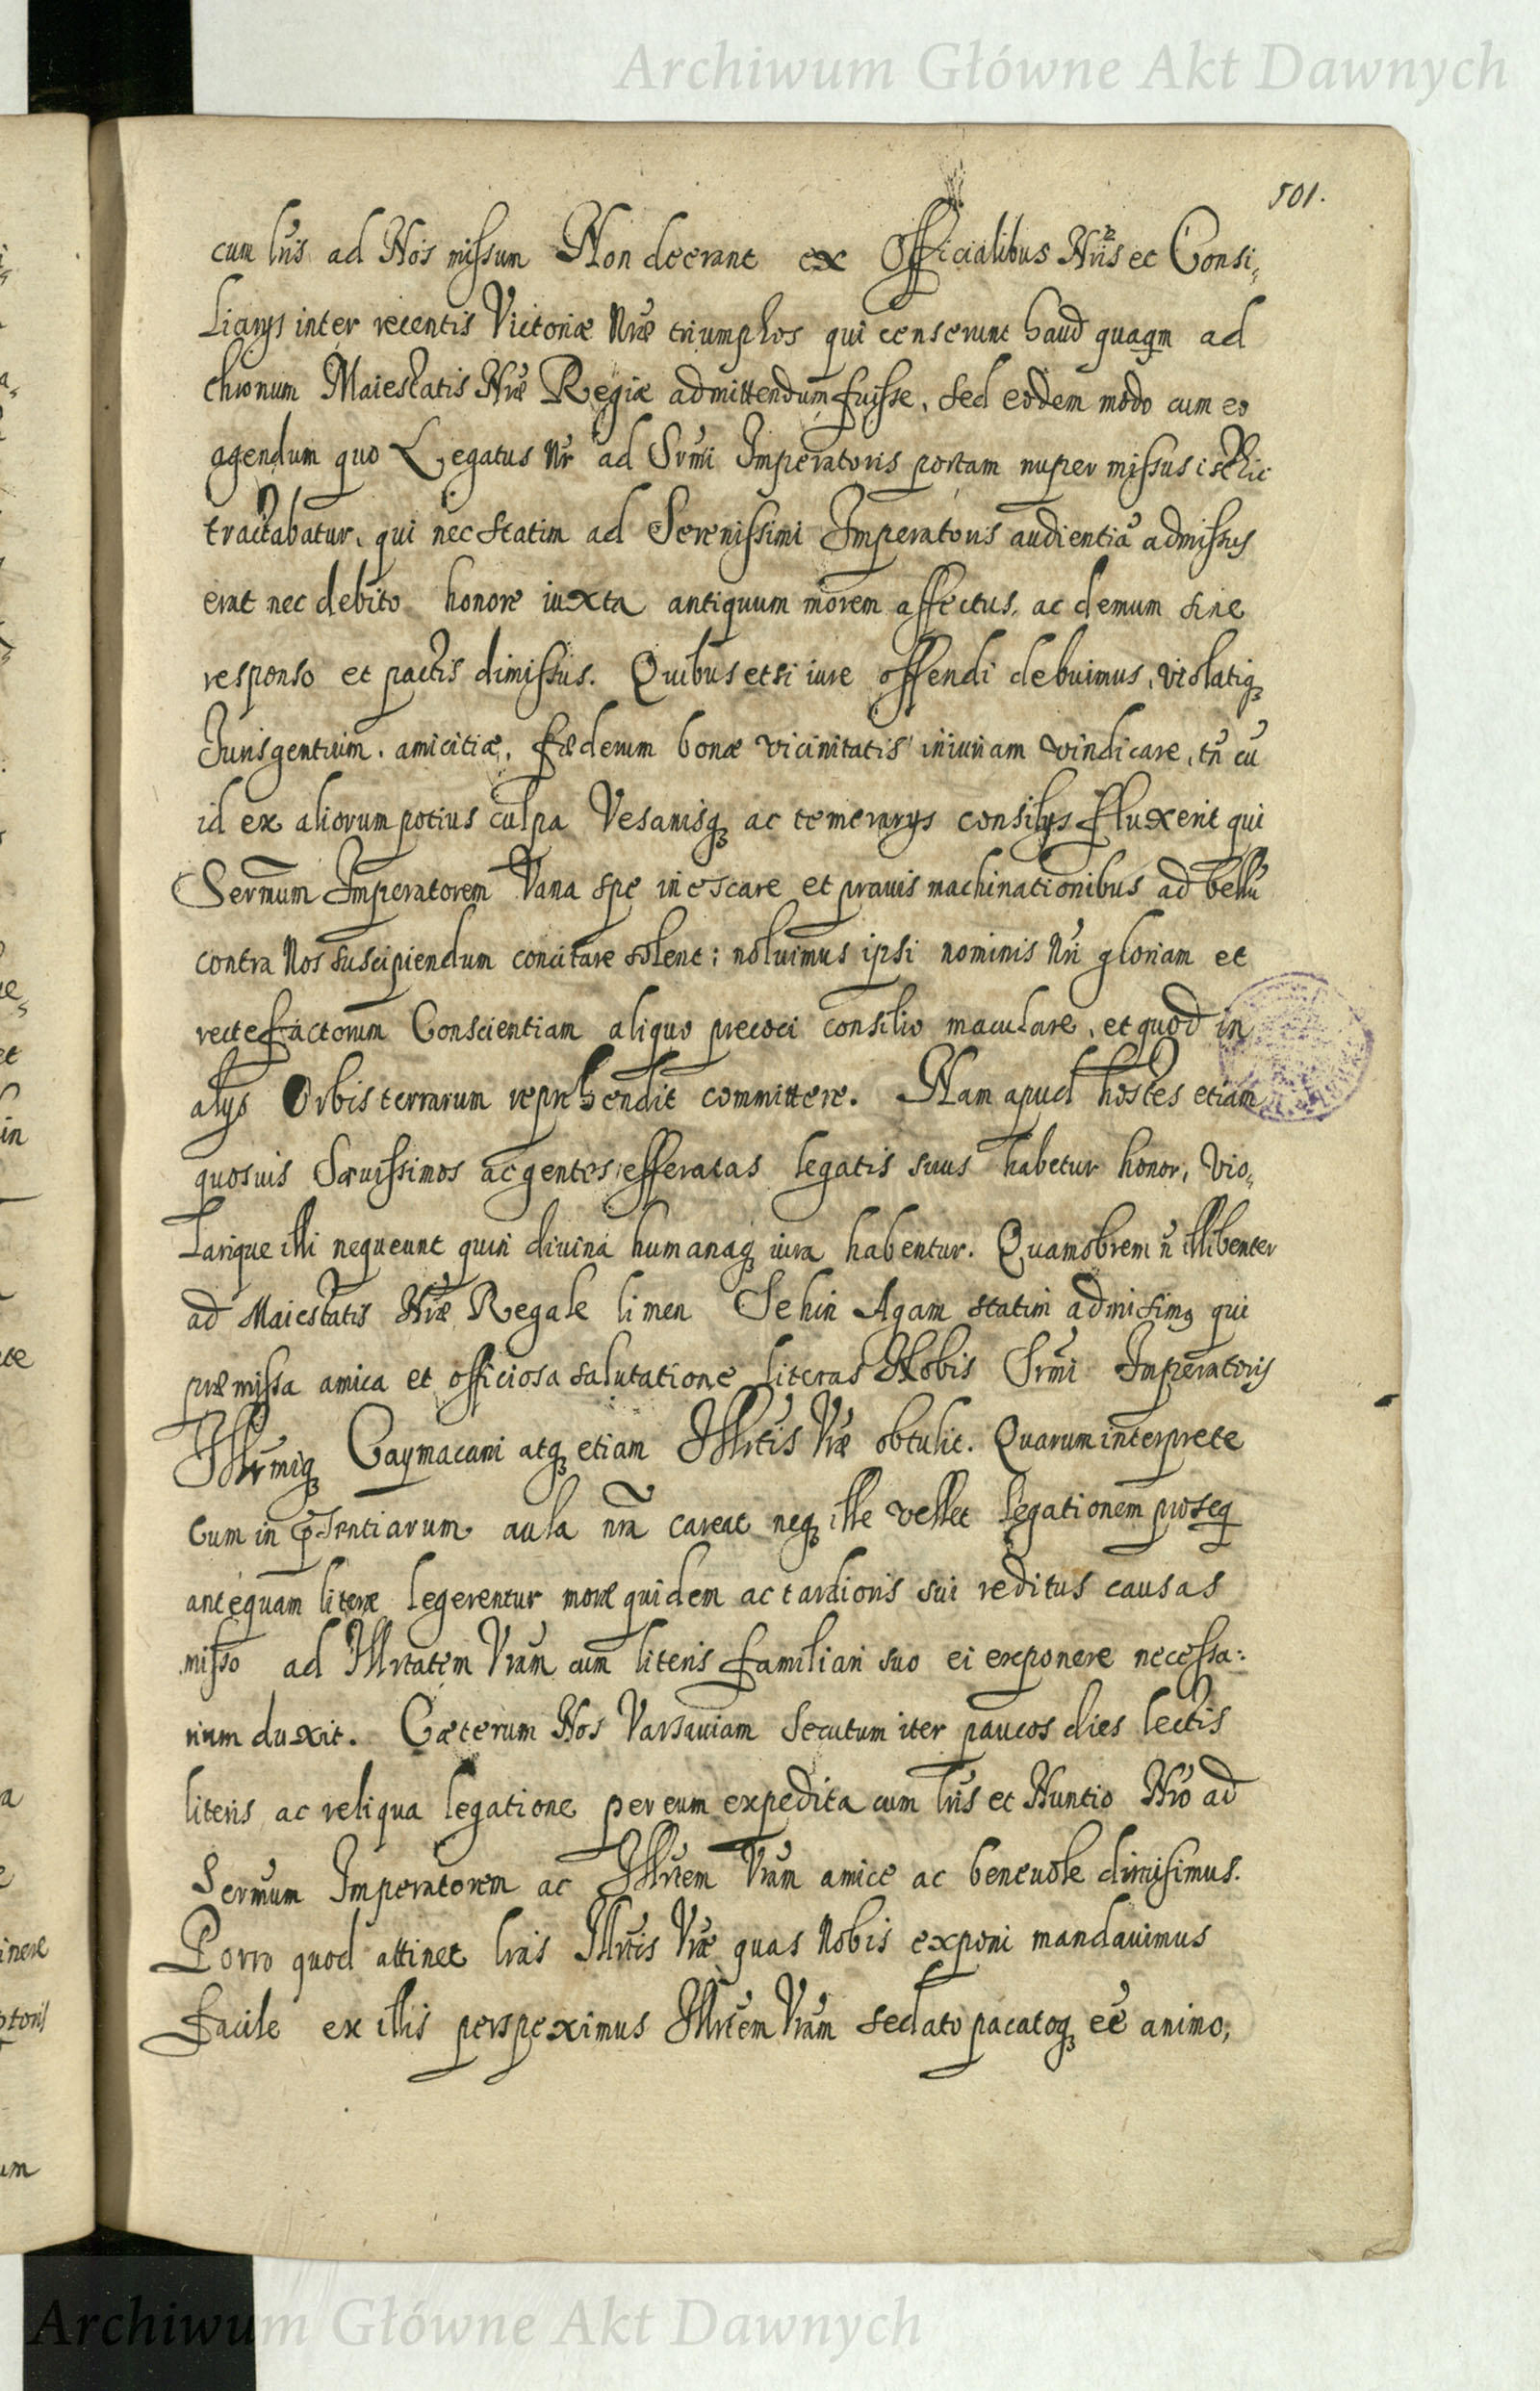 Archiwum Główne Akt Dawnych
501.
cum lris ad Nos missum Non deerant ex Officialibus Nris et Consi,
liarys inter recentis Victoriæ Nræ triumphos qui censerunt haud quaqm ad
thronum Maiestatis Nræ Regiæ admittendum fuisse, sed eodem modo cum eo
agendum quo Legatus Nr ad Srmi Imperatoris portam nuper missus isthic
tractabatur, qui nec statim ad Serenissimi Imperatoris audientiã admissus
erat nec debito honore iuxta antiquum morem affectus, ac demum sine
responso et pactis dimissus. Quibus etsi iure offendi debuimus, violatiq
Juris gentium, amicitiæ, fæderum bonæ vicinitatis iniuriam vindicare, tñ cũ
id ex aliorum potius culpa Vesanisq ac temerarys consilys fluxerit qui
Sermum Imperatorem Vana spe inescare et pravis machinationibus ad bellũ
contra Nos suscipiendum concitare solent; noluimus ipsi nominis Nri gloriam et
recte factorum Conscientiam aliquo precoci consilio maculare, et quod in
alys Orbis terrarum reprehendit committere. Nam apud hostes etiam
quosuis Sævissimos ac gentes efferatas legatis suus habetur honor, Vio,
larique illi nequeunt quin divina humanaq iura habentur. Quamobrem ñ illibenter
ad Maiestatis Nræ Regale limen Sehin Agam statim admisimq qui
præmissa amica et officiosa salutatione literas Nobis Srmi Imperatoris
Illrmiq Caymacani atq etiam Illrtis Vræ obtulit. Quarum interprete
Cum in præsentiarum aula nra careat neq ille vellet legationem proseq
antequam literæ legerentur moræ quidem ac tardioris sui reditus causas
misso ad Illrtatem Vram cum literis familiari suo ei exponere necessa:
rium duxit. Cæterum Nos Varsauiam Secutum iter paucos dies lectis
literis ac reliqua legatione per eum expedita cum lris et Nuntio Nro ad
Sermum Imperatorem ac Illrtem Vram amice ac beneuole dimisimus.
Porro quod attinet lras Illrtis Vræ quas Nobis exponi mandauimus
facile ex illis perspeximus Illrtem Vram sedato pacatoq eẽ animo,
Archiwum Główne Akt Dawnych